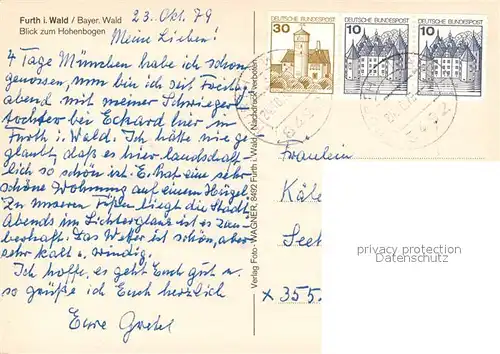 Furth i. Wald / Bayer. Wald
Blick zum Hohenbogen
23. Okt. 79
Meine Lieben!
4 Tage München habe ich schon
genossen, nun bin ich seit Freitag
abend mit meiner Schwieger
tochter bei Eckard hier im
Furth i. Wald. Ich hätte nie ge-
glaubt, daß es hier landschaft-
lich so schön ist. E. hat eine sehr
schöne Wohnung auf einem Hügel
Zu unseren Füßen liegt die Stadt
Abends im Lichterglanz ist es zau-
berhaft. Das Wetter ist schön, aber
sehr kalt u. windig.
Ich hoffe, es geht Euch gut u.
so grüße ich Euch herzlich
Eure Gretel
Verlag Foto-WAGNER, 8492 Furth i. Wald / Nachdruck verboten
30
DEUTSCHE BUNDESPOST
10
DEUTSCHE BUNDESPOST
10
DEUTSCHE BUNDESPOST
Fräulein
Käte
Seet
x 355
privacy protection
Datenschutz